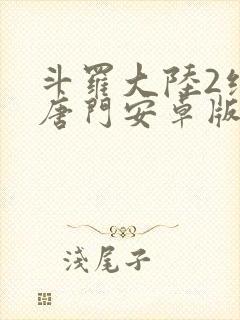 斗羅大陸2
唐門安卓版
淺尾子